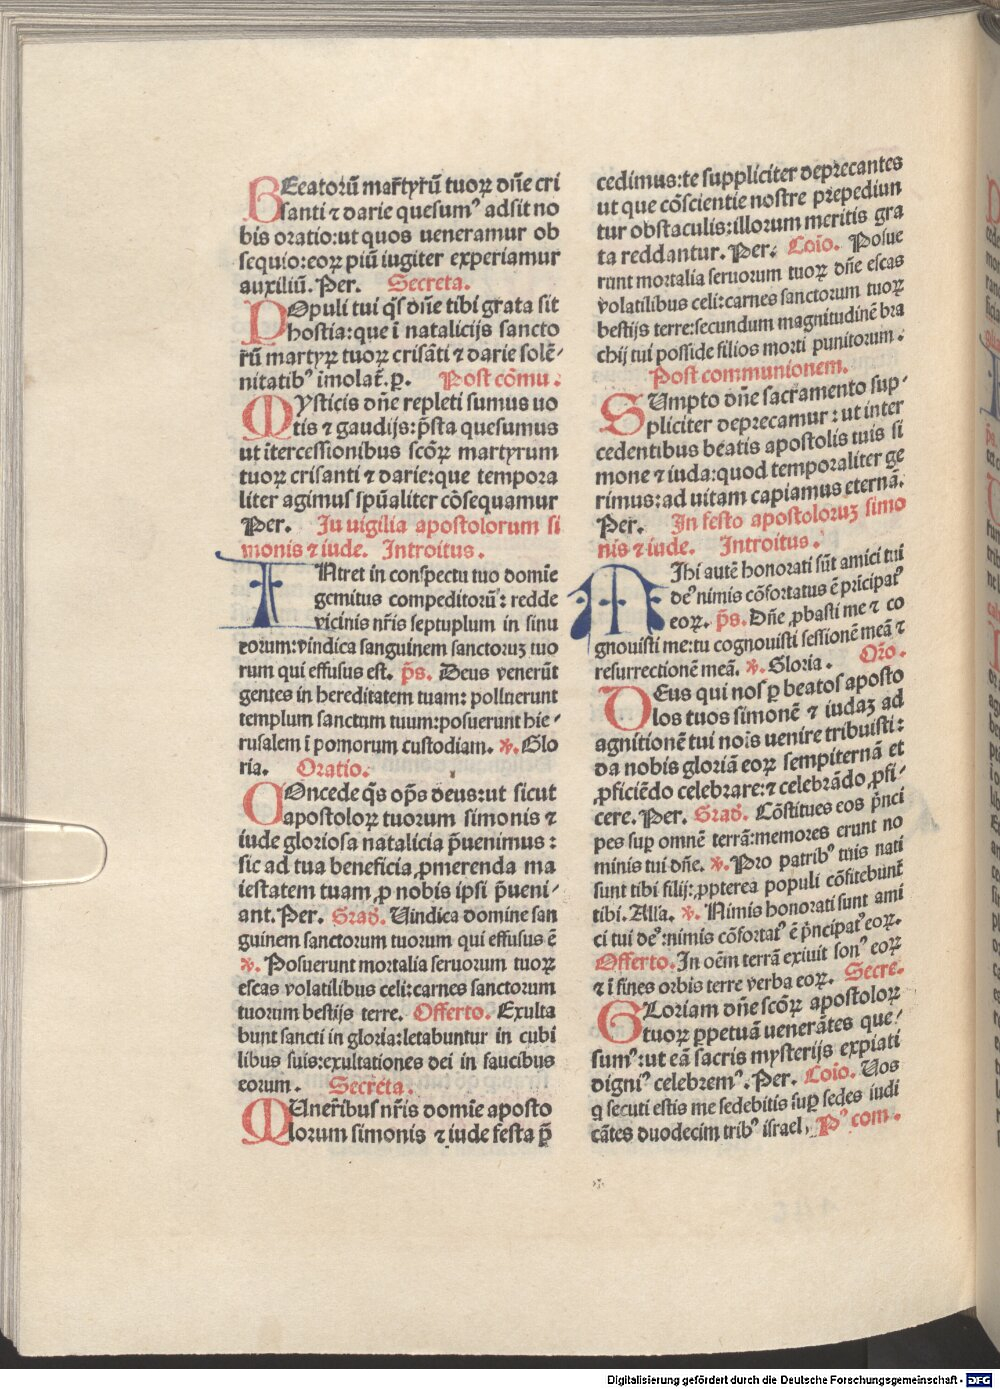 BEeatoꝝū mar̄tyrū tuoꝝ dn̄e cri
santi ⁊ darie quesumꝰ adsit no
bis oratio:ut quos ueneramur ob
sequio:eoꝝ piū iugiter experiamur
auxiliū. Per. Secreta.
POpuli tui q̄s dn̄e tibi grata sit
hostia:que ī natalicijs sancto
r̄ū martyꝝ tuoꝝ crisāti ⁊ darie solē-
nitatibꝰ imolat̄. p̱. Post cōmu.
MYsticis dn̄e repleti sumus uo
tis ⁊ gaudijs:p̄sta quesumus
ut ītercessionibus scōꝝ martyrum
tuoꝝ crisanti ⁊ darie:que tempora
liter agimus spūaliter cōsequamur
Per. Ju uigilia apostolorum si
monis ⁊ iude. Introitus.
INtret in conspectu tuo domīe
gemitus compeditorū: redde
vicinis nr̄is septuplum in sinu
eorum:vindica sanguinem sanctoruꝫ tuo
rum qui effusus est. p̄s. Deus venerūt
gentes in hereditatem tuam: polluerunt
templum sanctum tuum:posuerunt hie-
rusalem ī pomorum custodiam. ℣. Glo
ria. Oratio.
COncede q̄s op̄s deus:ut sicut
apostoloꝝ tuorum simonis ⁊
iude gloriosa natalicia p̄uenimus:
sic ad tua beneficia ꝓmerenda ma
iestatem tuam ꝓ nobis ipsi p̄ueni-
ant. Per. Grad̄. Uindica domine san
guinem sanctorum tuorum qui effusus ē
℣. Posuerunt mortalia seruorum tuoꝝ
escas volatilibus celi:carnes sanctorum
tuorum bestijs terre. Offerto. Exulta
bunt sancti in gloria:letabuntur in cubi
libus suis:exultationes dei in faucibus
eorum. Secreta.
MUner̄ibus nr̄is domīe aposto
lorum simonis ⁊ iude festa p̄
cedimus:te suppliciter deprecantes
ut que cōscientie nostre prepediun
tur obstaculis:illorum meritis gra
ta reddantur. Per. Coīo. Posue
runt mortalia seruorum tuoꝝ dn̄e escas
volatilibus celi:carnes sanctorum tuoꝝ
bestijs terre:secundum magnitudinē bra
chij tui posside filios morti punitorum.
Post communionem.
SUmpto dn̄e sacramento sup-
pliciter deprecamur: ut inter
cedentibus beatis apostolis tuis si
mone ⁊ iuda:quod temporaliter ge
rimus:ad uitam capiamus eternā.
Per. In festo apostoloruꝫ simo
nis ⁊ iude. Introitus.
MIhi autē honorati sūt amici tui
deꝰ nimis cōfortatus ē pr̄icipatꝰ
eoꝝ. p̄s. Dn̄e ꝓbasti me ⁊ co
gnouisti me:tu cognouisti sessionē meā ⁊
resurrectionē meā. ℣. Gloria. Or̄o.
DEus qui nos ꝑ beatos aposto
los tuos simonē ⁊ iudaꝫ ad
agnitionē tui nois uenire tribuisti:
da nobis gloriā eoꝝ sempiternā et
ꝓficiēdo celebrare:⁊ celebrādo ꝓfi-
cere. Per. Grad̄. Cōstitues eos p̄nci
pes suꝑ omnē terrā:memores erunt no
minis tui dn̄e. ℣. Pro patribꝰ tuis nati
sunt tibi filij:ꝓpterea populi cōfitebunt̄
tibi. Alla. ℣. Nimis honorati sunt ami
ci tui deꝰ:nimis cōfortatꝰ ē p̄ncipatꝰ eoꝝ.
Offerto. In oēm terrā exiuit sonꝰ eoꝝ
⁊ ī fines orbis terre verba eoꝝ. Secre.
GLoriam dn̄e scōꝝ apostoloꝝ
tuoꝝ ꝑpetuā uenerātes que-
sumꝰ:ut eā sacris mysterijs expiati
digniꝰ celebremꝰ. Per. Coīo. Uos
q̄ secuti estis me sedebitis suꝑ sedes iudi
cātes duodecim tribꝰ israel. Pꝰ com.
Digitalisierung gefördert durch die Deutsche Forschungsgemeinschaft - DFG